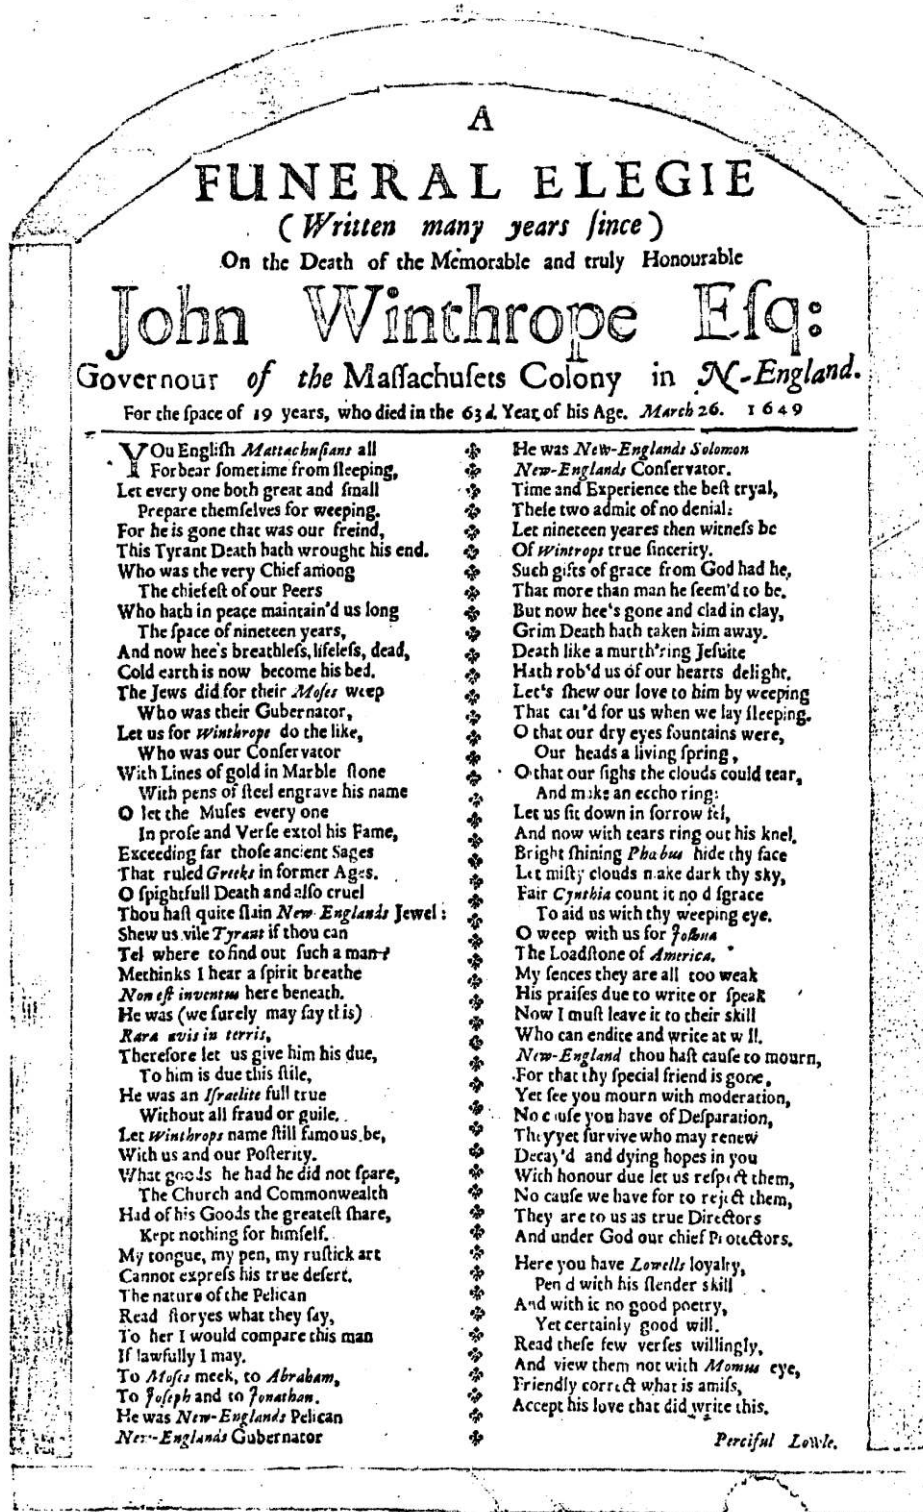 A
FUNERAL ELEGIE
(Written many years ſince)
On the Death of the Memorable and truly Honourable
John Winthrope Eſq:
Governour of the Maſſachuſets Colony in N-England.
For the ſpace of 19 years, who died in the 63d. Year of his Age. March 26. 1649
YOu Engliſh Mattachuſians all
Forbear ſometime from ſleeping,
Let every one both great and ſmall
Prepare themſelves for weeping.
For he is gone that was our freind,
This Tyrant Death hath wrought his end.
Who was the very Chief among
The chiefeſt of our Peers
Who hath in peace maintain'd us long
The ſpace of nineteen years,
And now hee's breathleſs, lifeleſs, dead,
Cold earth is now become his bed.
The Jews did for their Moſes weep
Who was their Gubernator,
Let us for Winthrope do the like,
Who was our Conſervator
With Lines of gold in Marble ſtone
With pens of ſteel engrave his name
O let the Muſes every one
In proſe and Verſe extol his Fame,
Exceeding far thoſe ancient Sages
That ruled Greeks in former Ages.
O ſpightfull Death and alſo cruel
Thou haſt quite ſlain New-Englands Jewel:
Shew us vile Tyrant if thou can
Tel where to find out ſuch a man?
Methinks I hear a ſpirit breathe
Non eſt inventus here beneath.
He was (we ſurely may ſay this)
Rara avis in terris,
Therefore let us give him his due,
To him is due this ſtile,
He was an Iſraelite full true
Without all fraud or guile.
Let Winthrops name ſtill famous be,
With us and our Poſterity.
What goods he had he did not ſpare,
The Church and Commonwealth
Had of his Goods the greateſt ſhare,
Kept nothing for himſelf.
My tongue, my pen, my ruſtick art
Cannot expreſs his true deſert.
The nature of the Pelican
Read ſtoryes what they ſay,
To her I would compare this man
If lawfully I may.
To Moſes meek, to Abraham,
To Joſeph and to Jonathan.
He was New-Englands Pelican
New-Englands Gubernator
He was New-Englands Solomon
New-Englands Conſervator.
Time and Experience the beſt tryal,
Theſe two admit of no denial:
Let nineteen yeares then witneſs be
Of Wintrops true ſincerity.
Such gifts of grace from God had he,
That more than man he ſeem'd to be.
But now hee's gone and clad in clay,
Grim Death hath taken him away.
Death like a murth'ring Jeſuite
Hath rob'd us of our hearts delight.
Let's ſhew our love to him by weeping
That car'd for us when we lay ſleeping.
O that our dry eyes fountains were,
Our heads a living ſpring,
O that our ſighs the clouds could tear,
And make an eccho ring:
Let us ſit down in ſorrow ſtil,
And now with tears ring out his knel.
Bright ſhining Phabus hide thy face
Let miſty clouds make dark thy sky,
Fair Cynthia count it no diſgrace
To aid us with thy weeping eye.
O weep with us for Joſhua
The Loadſtone of America.
My ſences they are all too weak
His praiſes due to write or ſpeak
Now I muſt leave it to their skill
Who can endite and write at will.
New-England thou haſt cauſe to mourn,
For that thy ſpecial friend is gone,
Yet ſee you mourn with moderation,
No cauſe you have of Deſparation,
They yet ſurvive who may renew
Decay'd and dying hopes in you
With honour due let us reſpect them,
No cauſe we have for to reject them,
They are to us as true Directors
And under God our chief Protectors.
Here you have Lowells loyalty,
Pen'd with his ſlender skill
And with it no good poetry,
Yet certainly good will.
Read theſe few verſes willingly,
And view them not with Momus eye,
Friendly correct what is amiſs,
Accept his love that did write this.
Perciful Lowle.